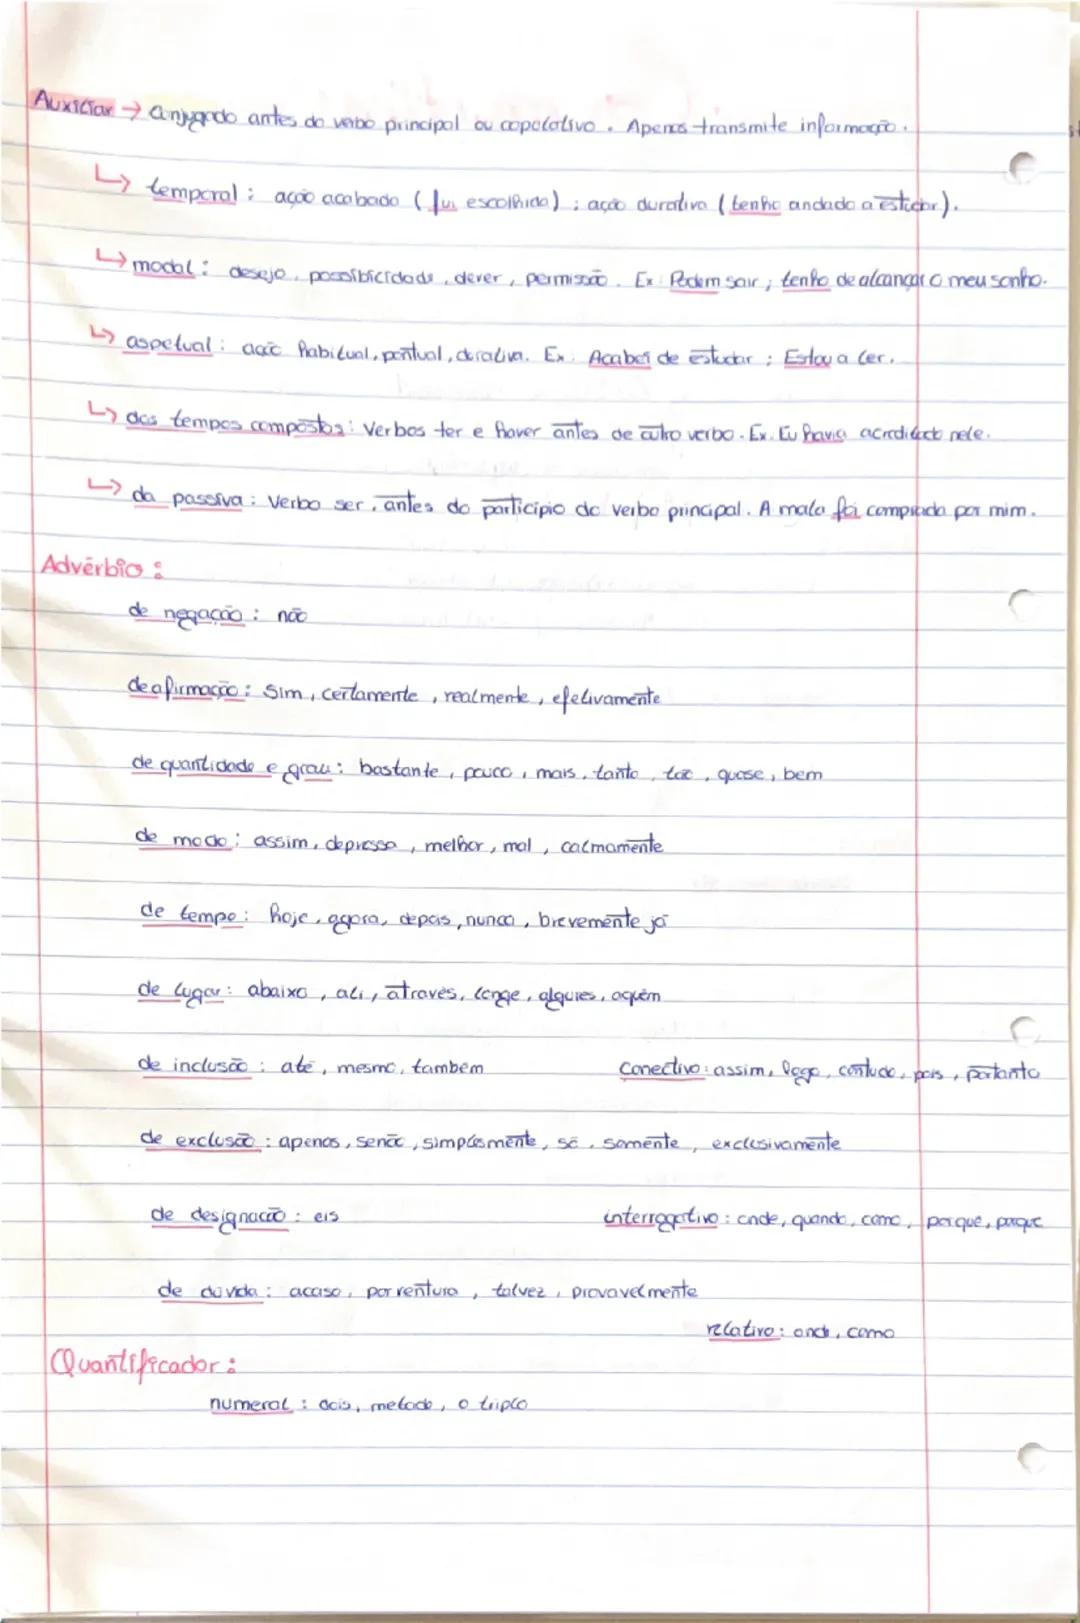 Auxiliar → Conjugado antes do verbo principal ou copolativo. Apenas transmite informação.
↳ temporal: ação acabado (fui escolhida); ação durativa (tenho andado a estudar).
↳ modal: desejo, possibilidade, dever, permissão. Ex: Podem sair; tenho de alcançar o meu sonho.
↳ aspetual: ação habitual, pontual, durativa. Ex: Acabei de estudar; Estou a ler.
↳ dos tempos compostos: Verbos ter e haver antes de outro verbo. Ex. Eu havia acreditado nele.
↳ da passiva: Verbo ser, antes do particípio do verbo principal. A mala foi comprada por mim.
Advérbio:
de negação: não
de afirmação: sim, certamente, realmente, efetivamente
de quantidade e grau: bastante, pouco, mais, tanto, tão, quase, bem
de modo: assim, depressa, melhor, mal, calmamente
de tempo: hoje, agora, depois, nunca, brevemente já
de lugar: abaixo, ali, através, longe, algures, aquém
de inclusão: até, mesmo, também conectivo: assim, logo, contudo, pois, portanto
de exclusão: apenas, senão, simplesmente, só, somente, exclusivamente
de designação: eis interrogativo: onde, quando, como, porquê, porque
de dúvida: acaso, porventura, talvez, provavelmente
relativo: onde, como
Quantificador:
numeral: dois, metade, o triplo